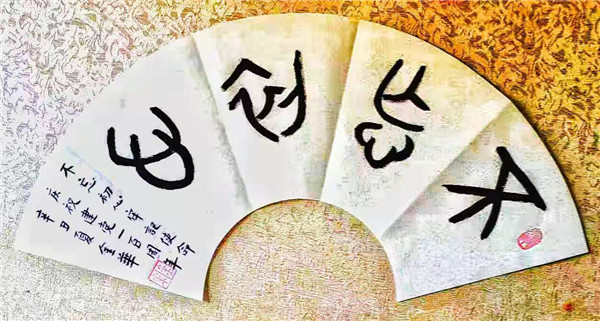 不忘初心
不忘初心牢記使命
庆祝建党一百周年
辛丑夏金華